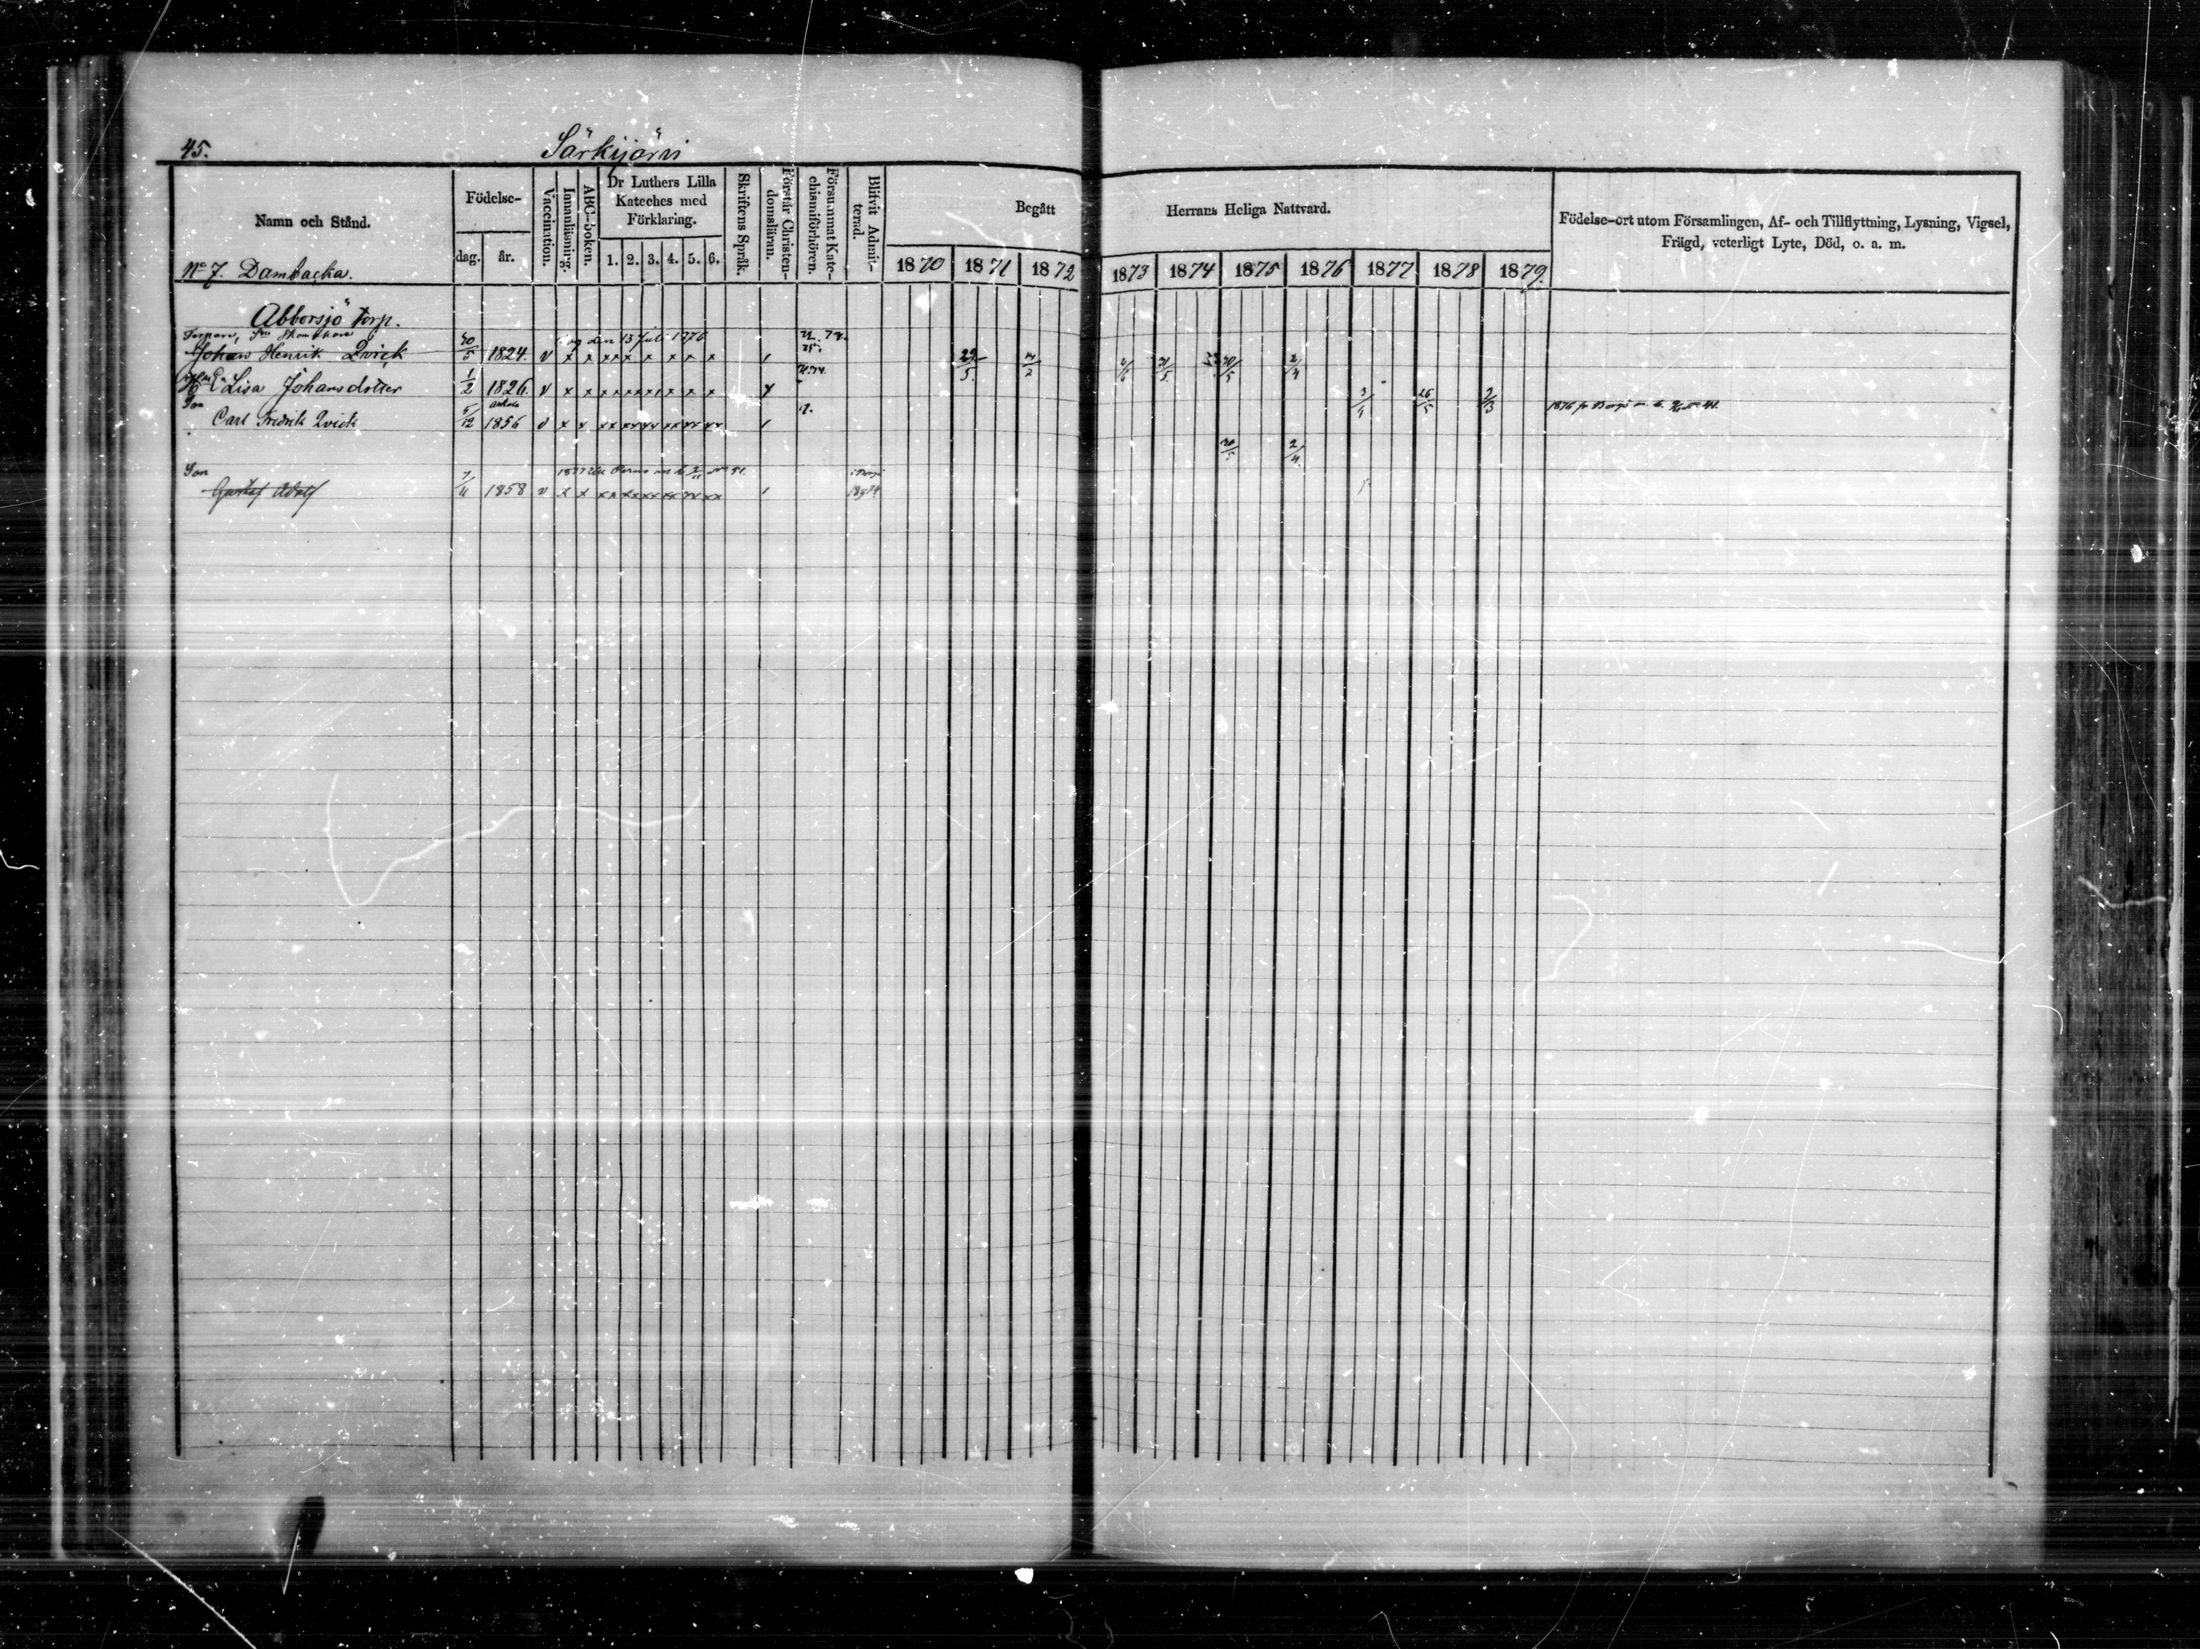 45.
Särkijärvi
Namn och Stånd.
Födelse-
dag. år.
Vaccination.
Innanläsning.
ABC-boken.
Dr Luthers Lilla
Kateches med
Förklaring.
1. 2. 3. 4. 5. 6.
Skriftens Språk.
Förstår Christen-
domsläran.
Försummat Kate-
chismiförhören.
Blifvit Admit-
terad.
Begått Herrans Heliga Nattvard.
1870 1871 1872 1873 1874 1875 1876 1877 1878 1879.
Födelse-ort utom Församlingen, Af- och Tillflyttning, Lysning, Vigsel,
Frägd, veterligt Lyte, Död, o. a. m.
No 7. Dambacka.
Abborsjö torp.
den 13 Juli 1876
Johan Henrik Qvick 30/5 1824. v x x x x x x x x x
Lisa Johansdotter 1/2 1826. v x x x x x x x x
Son
Carl Fredrik Qvick 5/12 1856 v x x xx xx xx xx xx xx
Son
Gustaf Adolf 7/11 1858 v x x xx xx xx xx xx xx